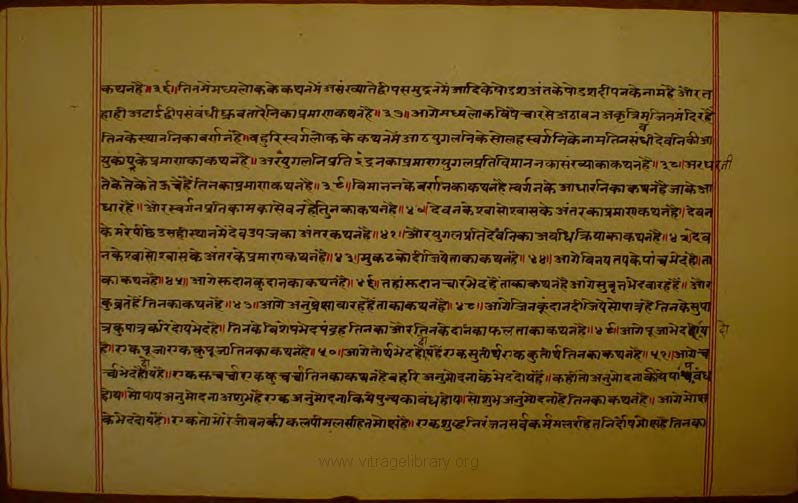 कथनहै॥३६॥तिनमेंमध्यलोककेकथनमेंअसंख्यातेद्वीपसमुद्रनमेंआदिकेषोडशअंतकेषोडशदीपनकेनामहै औरत
हाहीअटाईद्वीपसंबंधीध्रुवतारेनिकाप्रमाणकथनहै॥३७॥आगेमध्यलोकविषैचारसेअठावनअकृत्रिमजिनमंदिरहै
तिनकेस्थाननिकावर्णनहै॥बहुरिस्वर्गलोककेकथनमेंआठयुगलनिकेसोलहस्वर्गनिकेनामतिनसंबंधीदेवनिकीआ
केप्रमाणकाकथनहै॥अरयुगलनिप्रतिइंद्रनकाप्रमाणयुगलप्रतिविमाननकासंख्याकाकथनहै॥३८॥अरधरती
तेकेतेकेतेऊचेहैंतिनकाप्रमाणकथनहै॥३९॥विमाननकेवर्णनकाकथनहैस्वर्गनकेआधारनिकाकथनहैजाकेआ
धारहै॥औरस्वर्गनप्रतिकामकासेवनहैतिनकाकथनहै॥४०॥देवनकेश्वासोश्वासकेअंतरकाप्रमाणकथनहै।देवन
केमरेपीछैउसहीस्थानमेंदेवउपजकाअंतरकथनहै॥४१॥औरयुगलप्रतिदेवनिकाअवधिक्रियाकाकथनहै॥४२॥देव
नकेश्वासोश्वासकेअंतरकेप्रमाणकथनहै॥४३॥मुकटकोदीजियेताकाकथनहै॥४४॥आगेविनयतपकेपांचभेदहै।ता
काकथनहै॥४५॥आगेसूदानकूदानकाकथनहै॥४६॥तहांसूदानचारभेदहैंताकाकथनहैआगेसुवृतभेदबारहहैं॥और
कुव्रतहैंतिनकाकथनहै॥४७॥आगेअनुप्रेक्षाबारहहैंताकाकथनहै॥४८॥आगेजिनकूंदानदीजियेसोपात्रहैंतिनकेसुपा
त्रकुपात्रकरिदोयभेदहै॥तिनकेविशेषभेदपंद्रहतिनकाऔरतिनकेदानकाफलताकाकथनहै॥४९॥आगेपूजाभेददोय
है॥एकपूजाएककुपूजातिनकाकथनहै॥५०॥आगेतीर्थभेददोयहैंएकसुतीर्थएककुतीर्थतिनकाकथनहै॥५१॥आगेच
र्चाभेददोयहैं॥एकसुचर्चाएककुचर्चातिनकाकथनहैबहुरिअनुमोदनाकेभेददोयहैं॥कहींतोअनुमोदनाकीयेपापबंध
होय॥सोपापअनुमोदनाअशुभहैएकअनुमोदनाकियेपुन्यकाबंधहोय॥सोशुभअनुमोदनाहैतिनकाकथनहै॥आगेमोक्ष
केभेददोयहैं॥एकतोभोरेजीवनकीकलपीमलसहितमोक्षहै॥एकशुद्धनिरंजनसर्वकर्ममलरहितनिर्दोषमोक्षहैतिनका
www.vitragelibrary.org